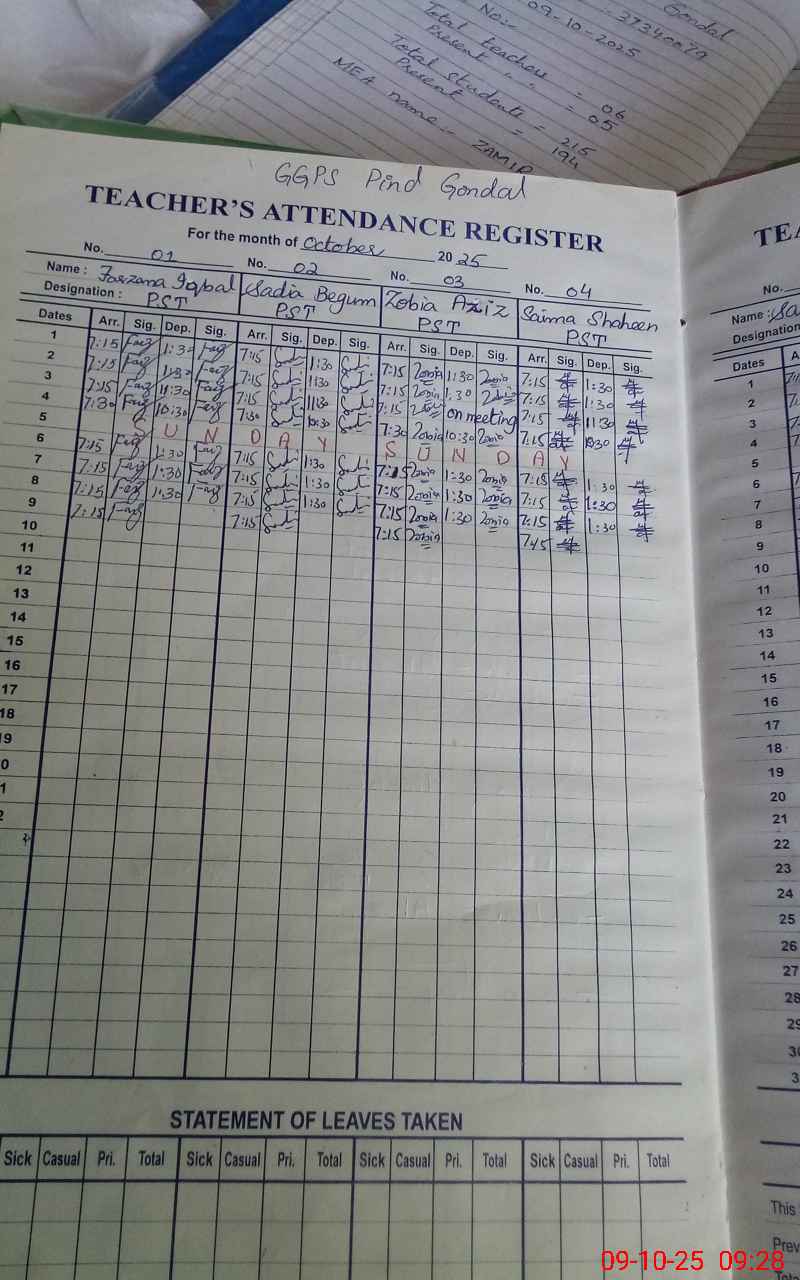 Gondal
No:- - 37340079
09-10-2025
Total teachers = 06
Present " " = 05
Total students = 215
Present = 194
MEA name:- ZAMIR
GGPS Pind Gondal
TEACHER'S ATTENDANCE REGISTER
For the month of October 2025
No. 01 No. 02 No. 03 No. 04
Name : Farzana Iqbal Sadia Begum Zobia Aziz Saima Shaheen
Designation : PST PST PST PST
Dates Arr. Sig. Dep. Sig. Arr. Sig. Dep. Sig. Arr. Sig. Dep. Sig. Arr. Sig. Dep. Sig.
1 7:15 Farz 1:30 Farz 7:15 1:30 7:15 Zobia 1:30 Zobia 7:15 1:30
2 7:15 Farz 1:30 Farz 7:15 1:30 7:15 Zobia 1:30 Zobia 7:15 1:30
3 7:15 Farz 11:30 Farz 7:15 11:30 7:15 Zobia on meeting 7:15 11:30
4 7:30 Farz 10:30 Farz 7:30 10:30 7:30 Zobia 10:30 Zobia 7:15 10:30
5 SUNDAY SUNDAY
6 7:15 Farz 1:30 Farz 7:15 1:30 7:15 Zobia 1:30 Zobia 7:15 1:30
7 7:15 Farz 1:30 Farz 7:15 1:30 7:15 Zobia 1:30 Zobia 7:15 1:30
8 7:15 Farz 1:30 Farz 7:15 1:30 7:15 Zobia 1:30 Zobia 7:15 1:30
9 7:15 Farz 7:15 7:15 Zobia 7:45
10
11
12
13
14
15
16
17
18
19
STATEMENT OF LEAVES TAKEN
Sick Casual Pri. Total Sick Casual Pri. Total Sick Casual Pri. Total Sick Casual Pri. Total
No.
Name :
Designation
Dates
1
2
3
4
5
6
7
8
9
10
11
12
13
14
15
16
17
18
19
20
21
22
23
24
25
26
27
28
This
09-10-25 09:28